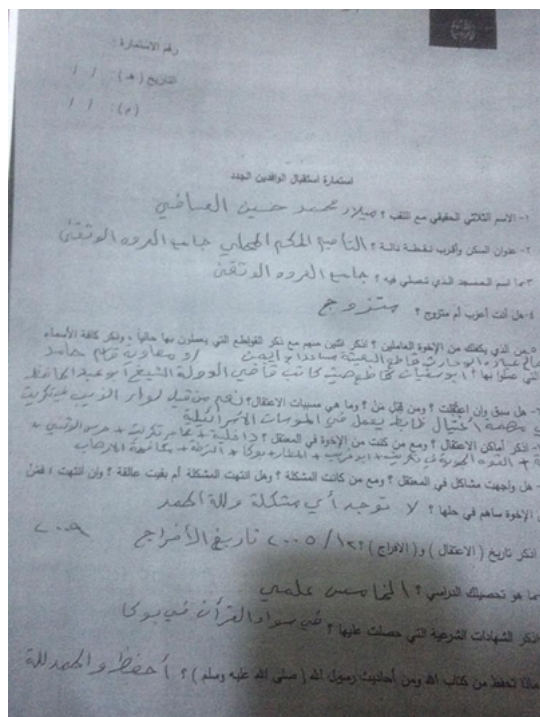 رقم الاستمارة :
التاريخ (هـ) : / /
(م) : / /
استمارة استقبال الوافدين الجدد
١- الاسم الثلاثي الحقيقي مع اللقب ؟ ميلاد محمد حسين العسافي
٢- عنوان السكن وأقرب نقطة دالة ؟ التاميم الحكم المحلي جامع العروه الوثقى
٣- ما اسم المسجد الذي تصلي فيه ؟ جامع العروه الوثقى
٤- هل أنت أعزب أم متزوج ؟ متزوج
٥- من الذي يكفلك من الإخوة العاملين ؟ اذكر اثنين منهم مع ذكر القواطع التي يعملون بها حالياً ، وذكر كافة الأسماء
التي عملوا بها ؟ ابو سفيان كاتب قاضي الدولة الشيخ ابو عبد الحافظ
- هل سبق وإن اعتقلت ؟ ومن قِبَل مَنْ ؟ وما هي مسببات الاعتقال ؟ نعم من قبل لواء الذيب في تكريت
مهمة اغتيال ضابط يعمل في الموسات الاسرائيلية
- اذكر أماكن الاعتقال ؟ ومع من كنت من الإخوة في المعتقل ؟ داخلية + تكريت +
+ في تكريت + ابو غريب + المطار + بوكا + + مكافحة الارهاب
- هل واجهت مشاكل في المعتقل ؟ ومع من كانت المشكلة ؟ وهل انتهت المشكلة أم بقيت عالقة ؟ وإن انتهت ؛ فمَنْ
الإخوة ساهم في حلها ؟ لا توجد أي مشكلة وللة الحمد
اذكر تاريخ ( الاعتقال ) و( الافراج ) ؟ ٢٠٠٥/١٢ تاريخ الأفراج ٢٠٠٩
ما هو تحصيلك الدراسي ؟ الخامس علمي
اذكر الشهادات الشرعية التي حصلت عليها ؟ في سواد القرآن في بوكا
ماذا تحفظ من كتاب الله ومن أحاديث رسول الله ( صلى الله عليه وسلم ) ؟ أحفظ والحمد للة